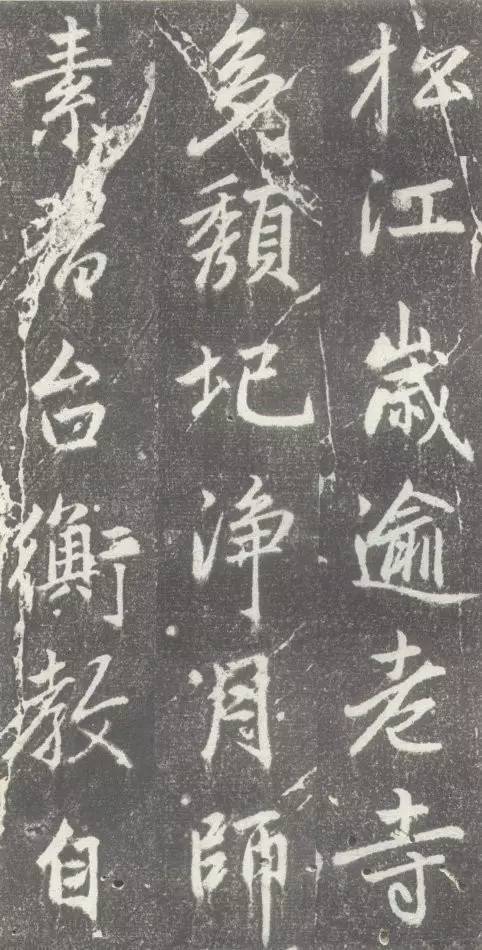 松江歲逾老寺
多頹圮淨月師
素習台衡教自